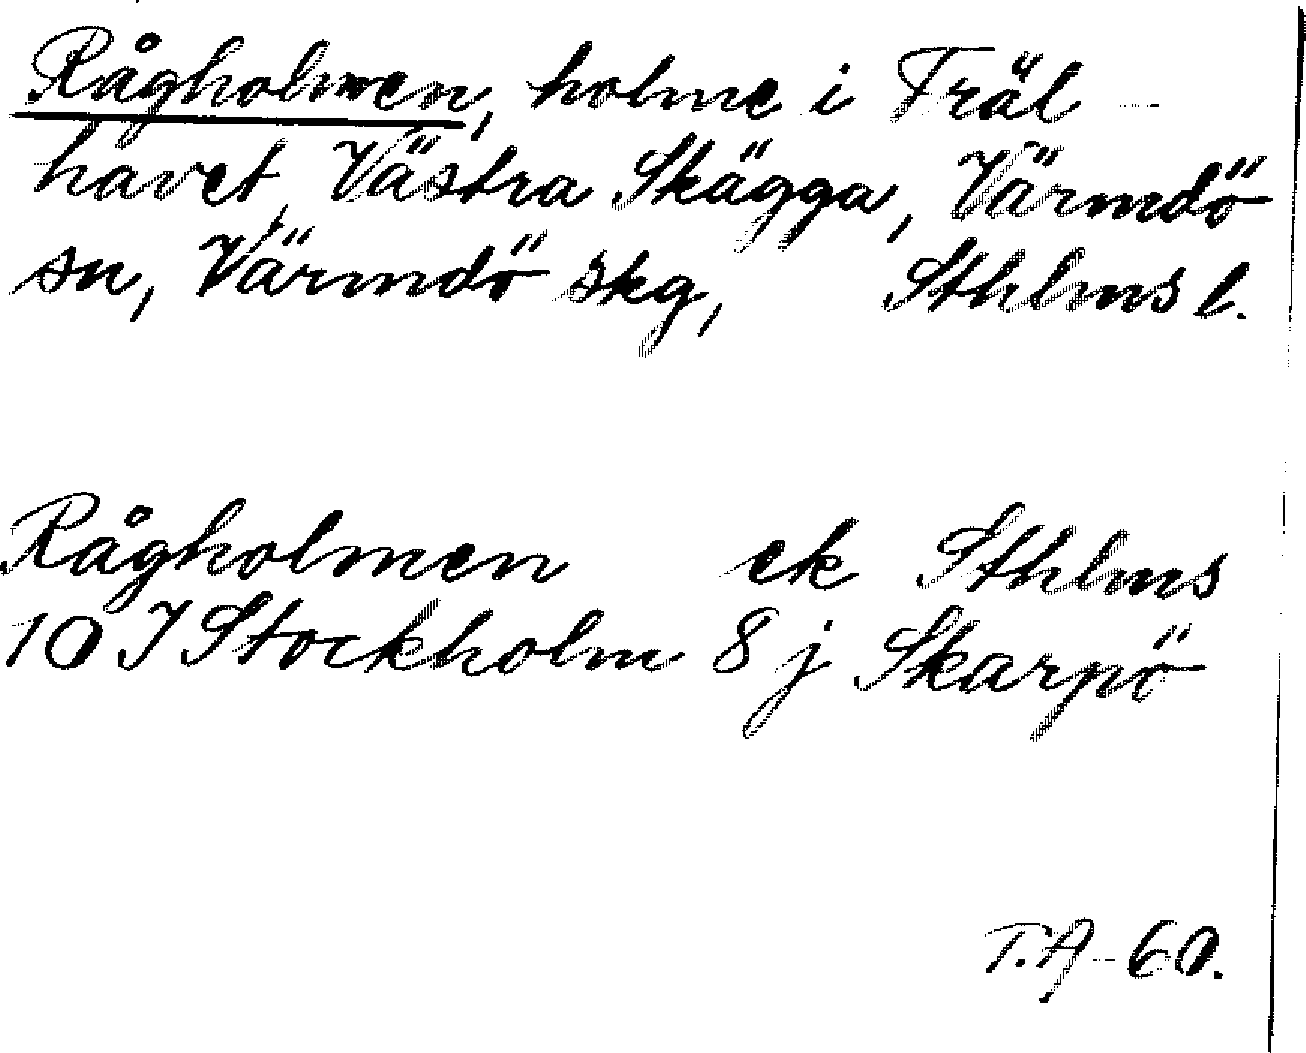 Rågholmen, holme i Träl-
havet, Västra Skägga, Värmdö
sn, Värmdö skg, Sthlms l.
Rågholmen ek Sthlms
10 I Stockholm 8 j Skarpö
T.A-60.